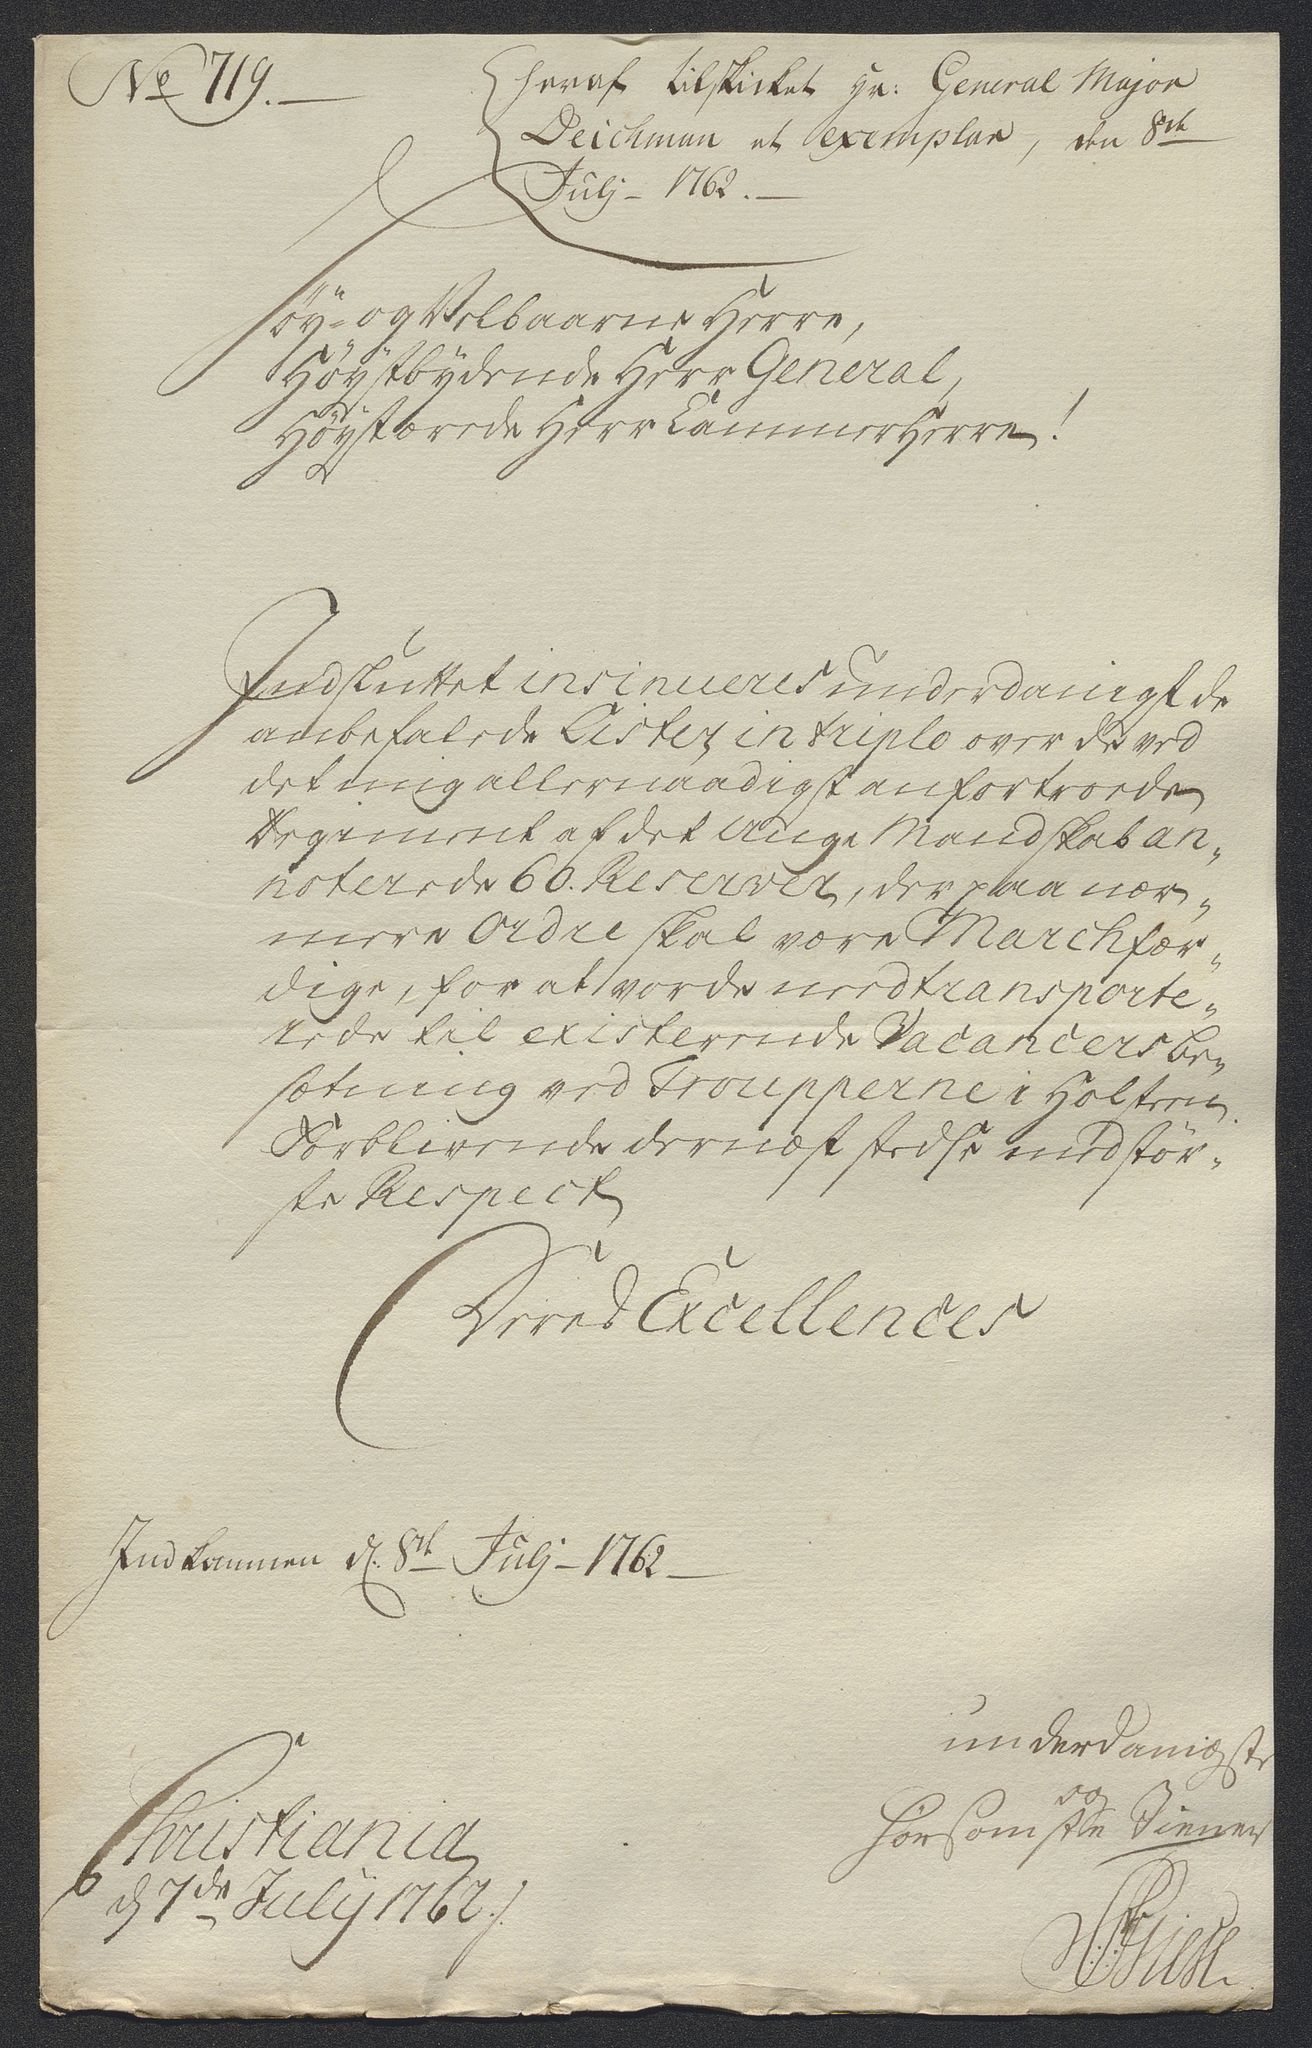 No 719.
heraf tilskicket Hr: General Major
Deichman et exemplar, den 8de
Julj - 1762.
Höy- og Velbaarne Herre,
Höystbydende Herr General,
Höystærede Herr Cammer Herre!
Indsluttet insinueres underdanigst de
anbefalede Lister in triplo over de ved
det mig allernaadigst anfortroede
Regiment af det unge Mandskab an„
noterede 66. Reserver, der paa nær„
mere Ordre skal være Marchfær„
dige, for at vorde nedtransporte„
rede til existerende Vacancers be„
sætning ved Troupperne i Holsteen.
Forblivende dernæst stedse med stör„
ste Respect
Deres Excellences
Indkommen d. 8de Julj - 1762
underdanigste
og
hörsomste Tiener
Christiania
d 7de July 1762.